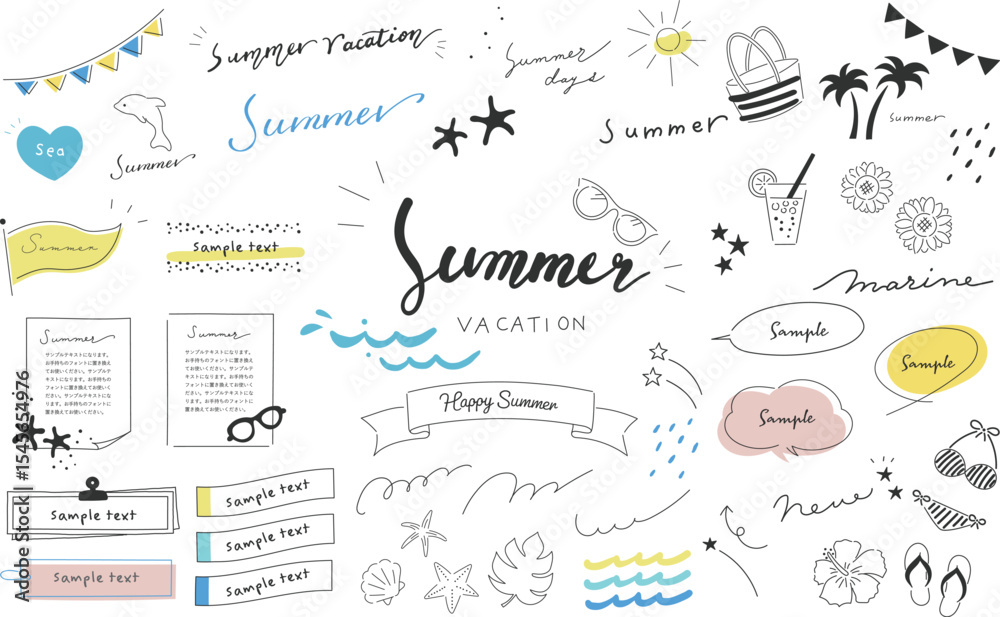 Summer vacation
Summer
days
Sea
Summer
Summer
Summer
Summer
Summer
sample text
Summer
VACATION
marine
Summer
サンプルテキストになります。
お手持ちのフォントに置き換え
てお使いください。サンプルテ
キストになります。お手持ちの
フォントに置き換えてお使いく
ださい。サンプルテキストにな
ります。お手持ちのフォントに
置き換えてお使いください。
Summer
サンプルテキストになります。
お手持ちのフォントに置き換え
てお使いください。サンプルテ
キストになります。お手持ちの
フォントに置き換えてお使いく
ださい。サンプルテキストにな
ります。お手持ちのフォントに
置き換えてお使いください。
Sample
Sample
Sample
Happy Summer
sample text
sample text
sample text
sample text
sample text
neue
Adobe Stock | #1545654976